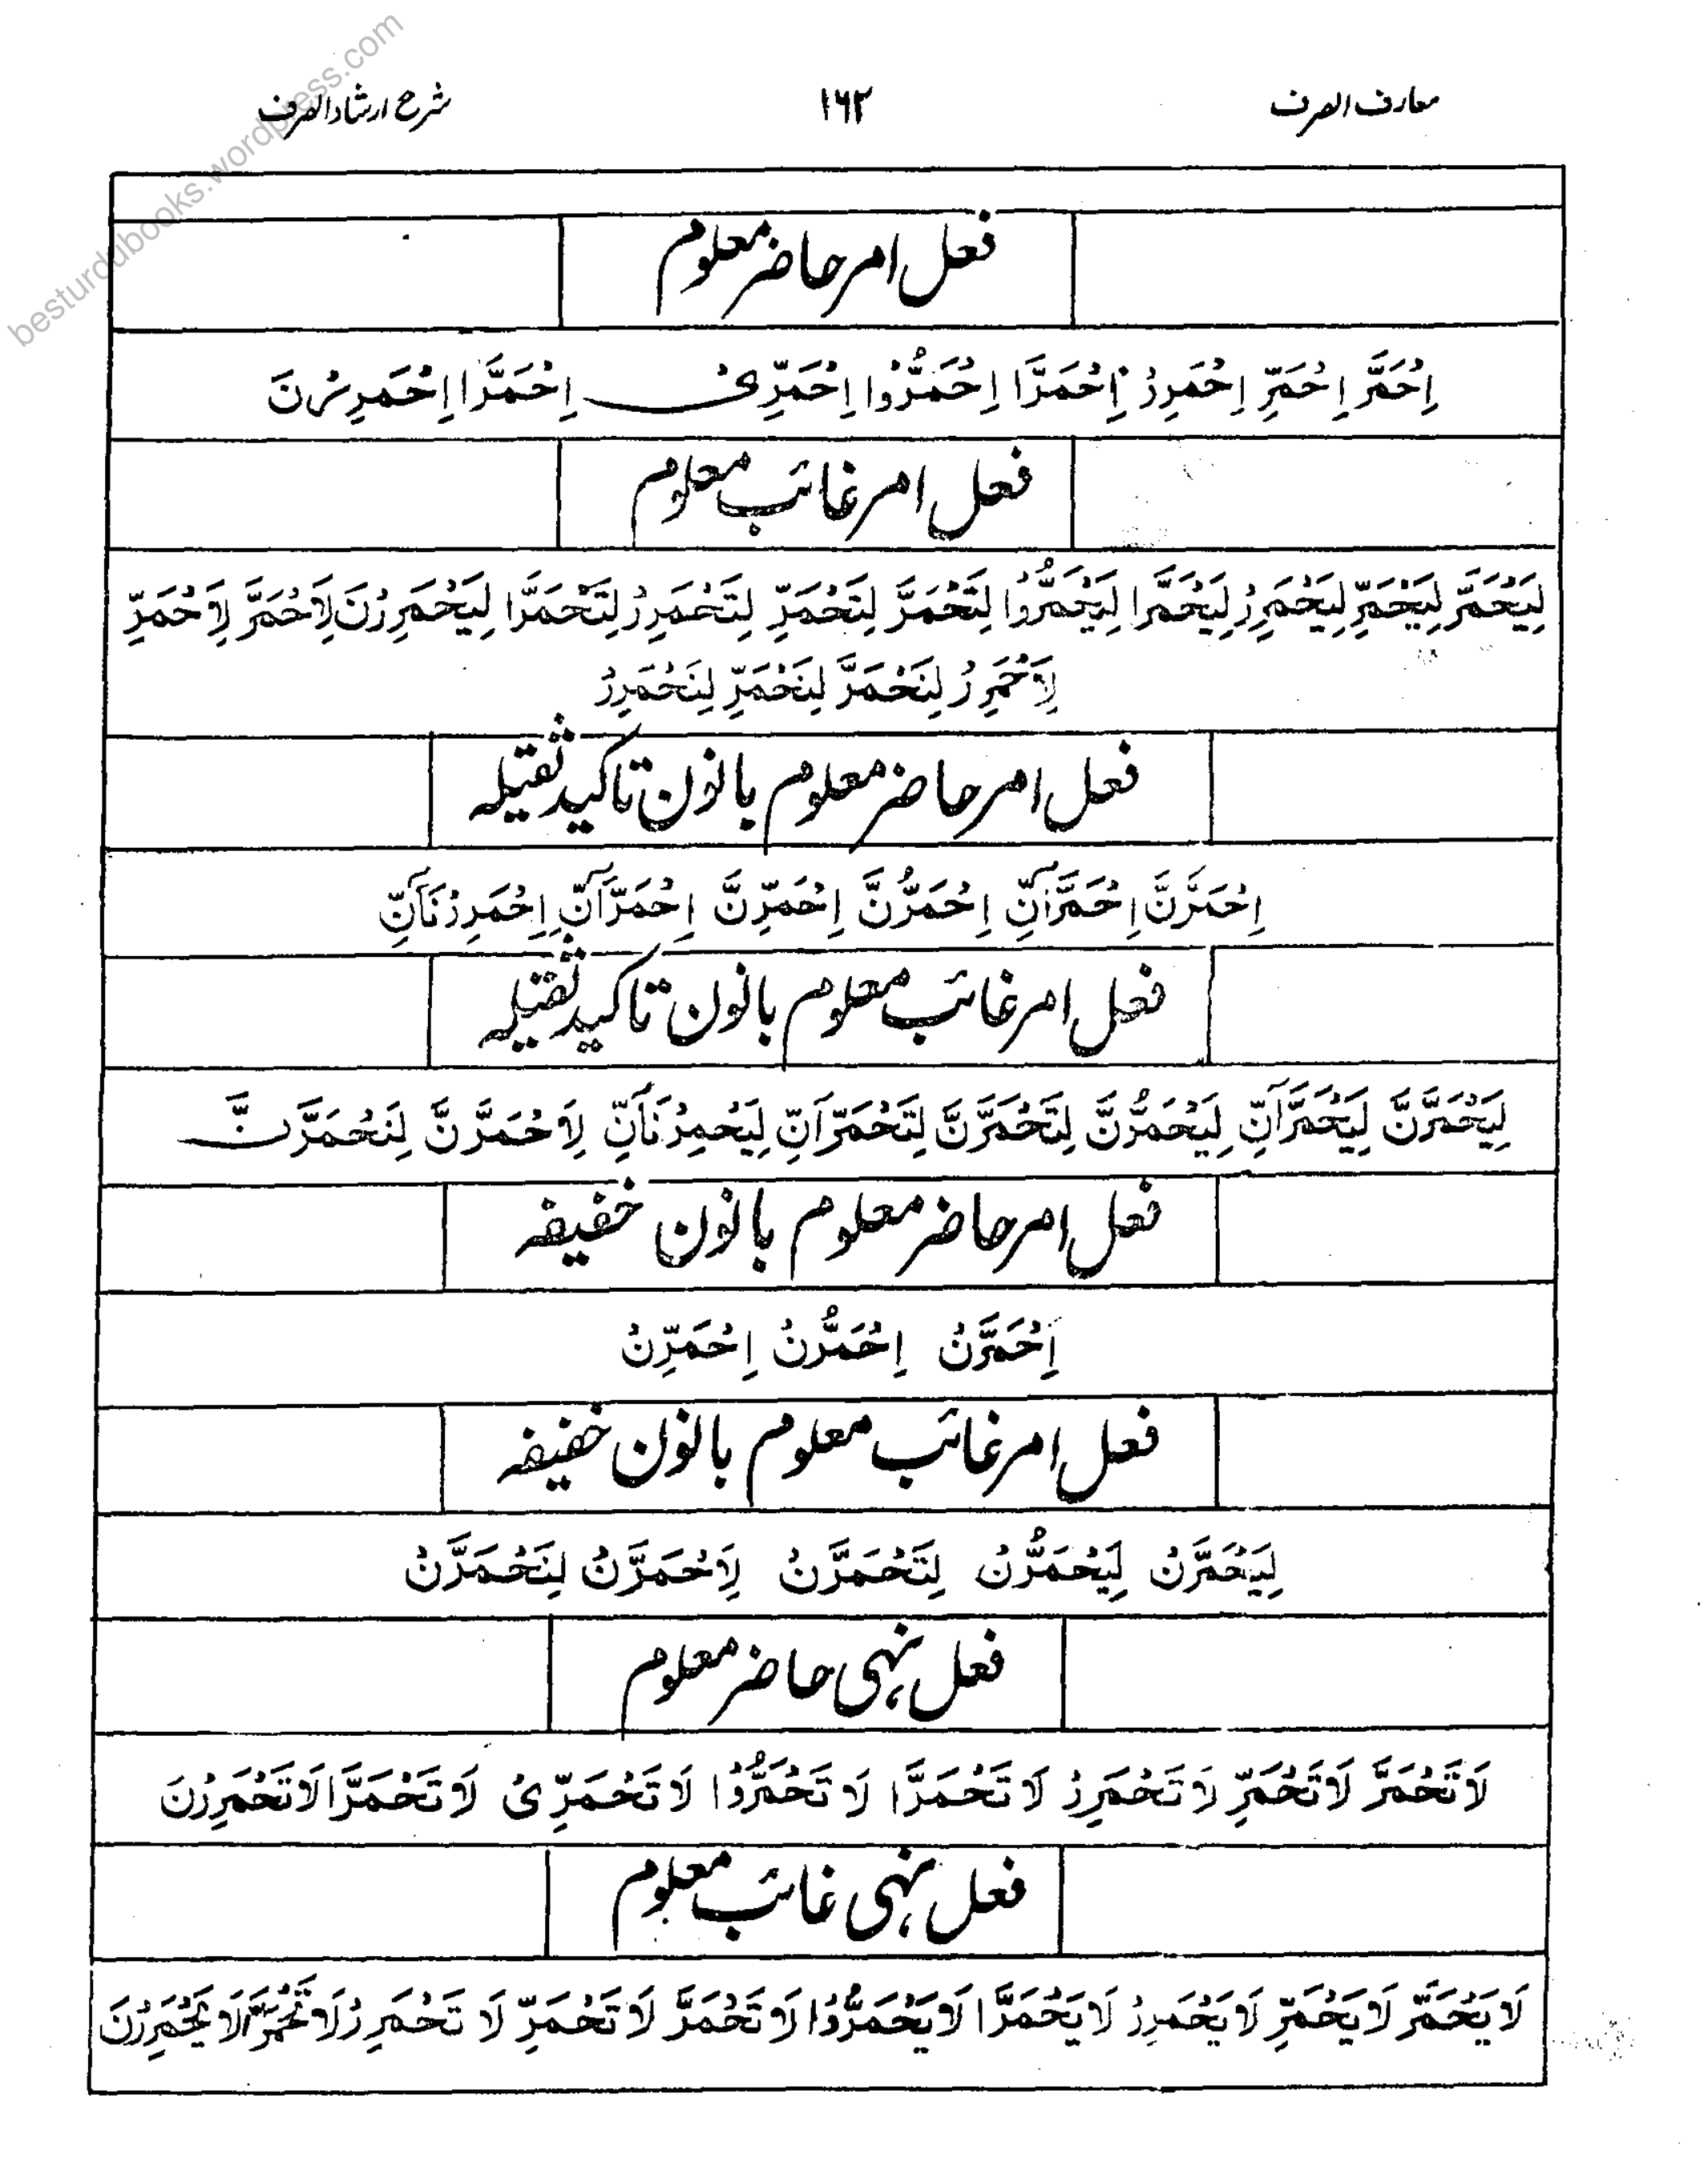 معارف الصرف ۱۶۲ شرح ارشاد الصرف
فعل امر حاضر معلوم
اِحْمَرَّ اِحْمَرِّ اِحْمَرِرْ اِحْمَرَّا اِحْمَرُّوْا اِحْمَرِّىْ اِحْمَرَّا اِحْمَرِرْنَ
فعل امر غائب معلوم
لِيَحْمَرَّ لِيَحْمَرِّ لِيَحْمَرِرْ لِيَحْمَرَّا لِيَحْمَرُّوْا لِتَحْمَرَّ لِتَحْمَرِّ لِتَحْمَرِرْ لِتَحْمَرَّا لِيَحْمَرِرْنَ لِاَحْمَرَّ لِاَحْمَرِّ
لِاَحْمَرِرْ لِنَحْمَرَّ لِنَحْمَرِّ لِنَحْمَرِرْ
فعل امر حاضر معلوم بانون تاکید ثقیلہ
اِحْمَرَّنَّ اِحْمَرَّآنِّ اِحْمَرُّنَّ اِحْمَرِّنَّ اِحْمَرَّآنِّ اِحْمَرِرْنَآنِّ
فعل امر غائب معلوم بانون تاکید ثقیلہ
لِيَحْمَرَّنَّ لِيَحْمَرَّآنِّ لِيَحْمَرُّنَّ لِتَحْمَرَّنَّ لِتَحْمَرَّآنِّ لِيَحْمِرْنَآنِّ لِاَحْمَرَّنَّ لِنَحْمَرَّنَّ
فعل امر حاضر معلوم بانون خفیفہ
اِحْمَرَّنْ اِحْمَرُّنْ اِحْمَرِّنْ
فعل امر غائب معلوم بانون خفیفہ
لِيَحْمَرَّنْ لِيَحْمَرُّنْ لِتَحْمَرَّنْ لِاَحْمَرَّنْ لِنَحْمَرَّنْ
فعل نہی حاضر معلوم
لَا تَحْمَرَّ لَا تَحْمَرِّ لَا تَحْمَرِرْ لَا تَحْمَرَّا لَا تَحْمَرُّوْا لَا تَحْمَرِّىْ لَا تَحْمَرَّا لَا تَحْمَرِرْنَ
فعل نہی غائب معلوم
لَا يَحْمَرَّ لَا يَحْمَرِّ لَا يَحْمَرِرْ لَا يَحْمَرَّا لَا يَحْمَرُّوْا لَا تَحْمَرَّ لَا تَحْمَرِّ لَا تَحْمَرِرْ لَا تَحْمَرَّا لَا يَحْمَرِرْنَ
besturdubooks.wordpress.com